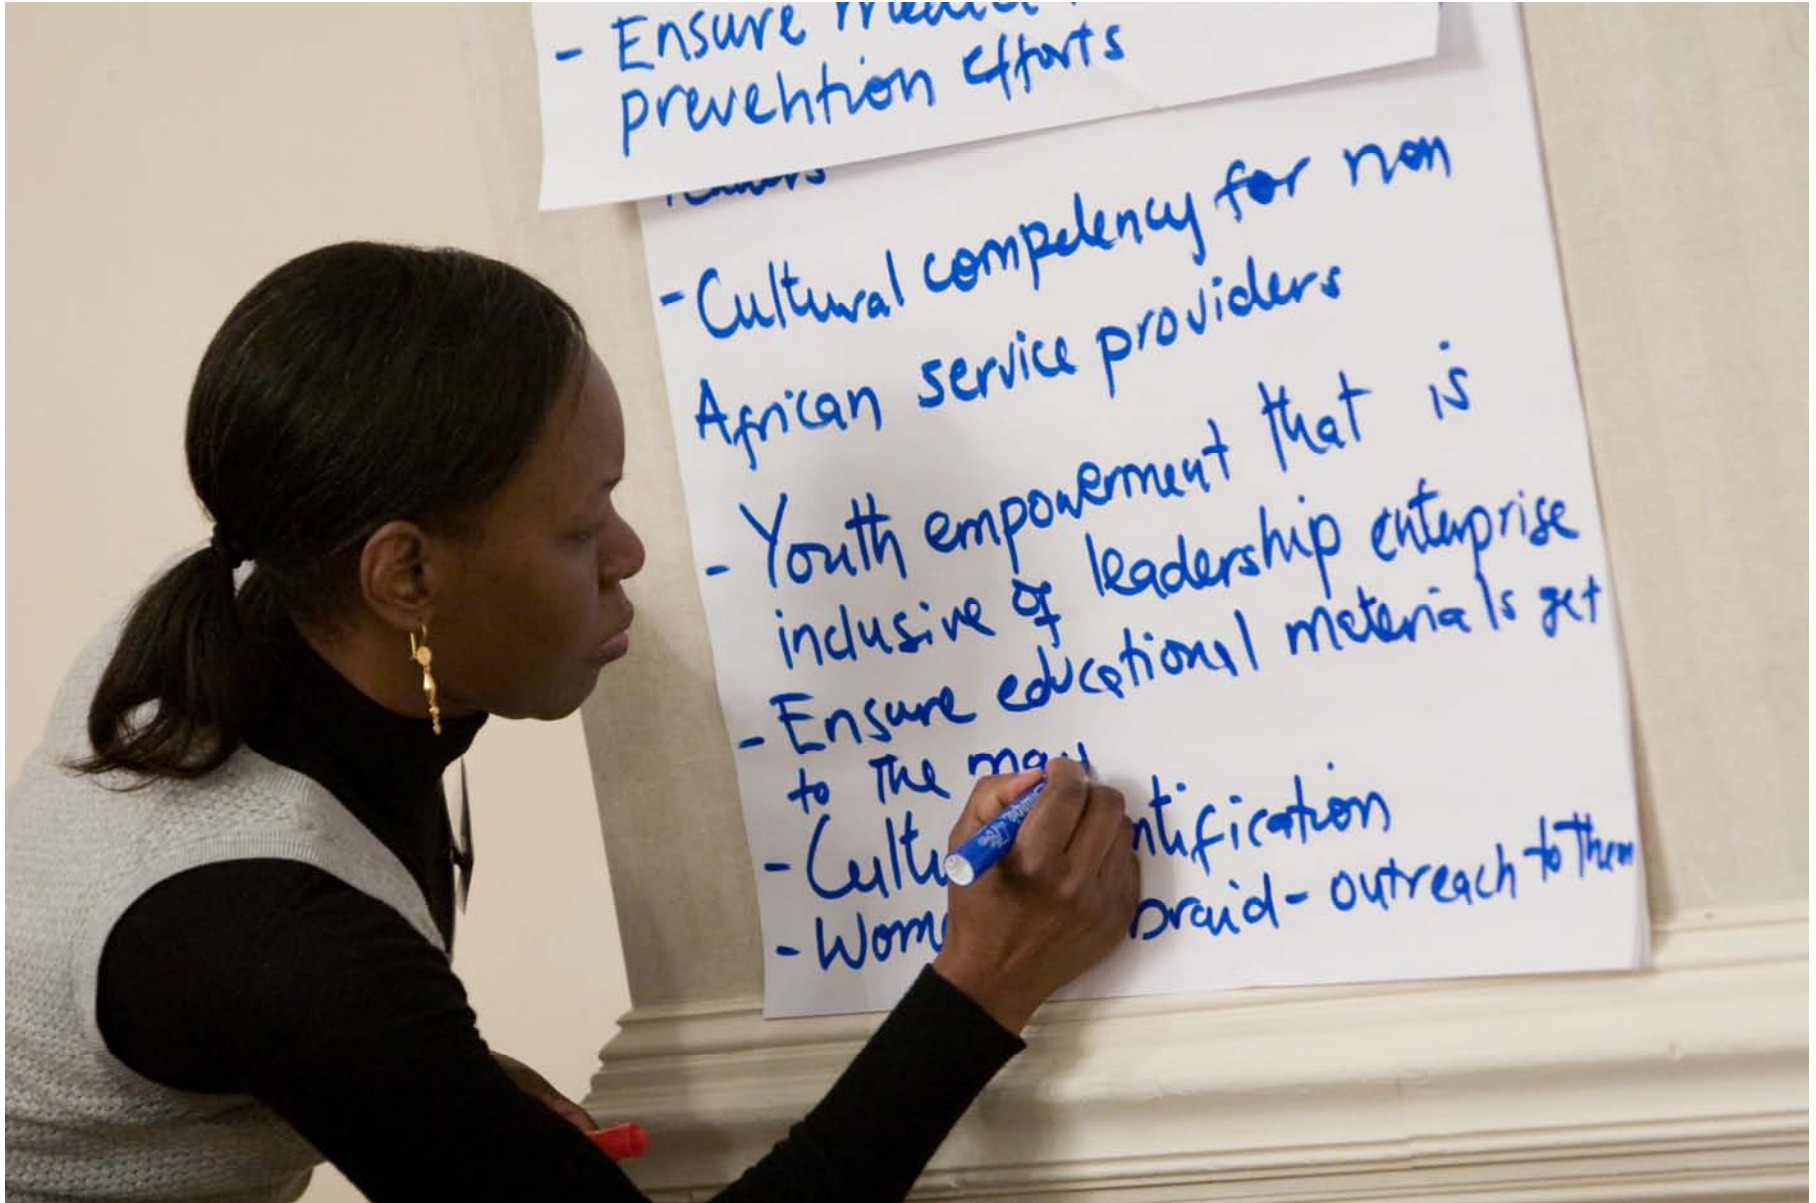 - Ensure
prevention efforts
- Cultural competency for non
African service providers
- Youth empowerment that is
inclusive of leadership enterprise
- Ensure educational materials get
to the
-
- braid - outreach to them